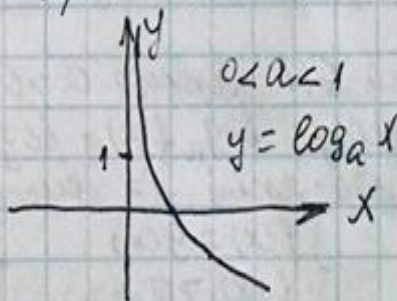 y
0<a<1
y = logₐ x
1
x